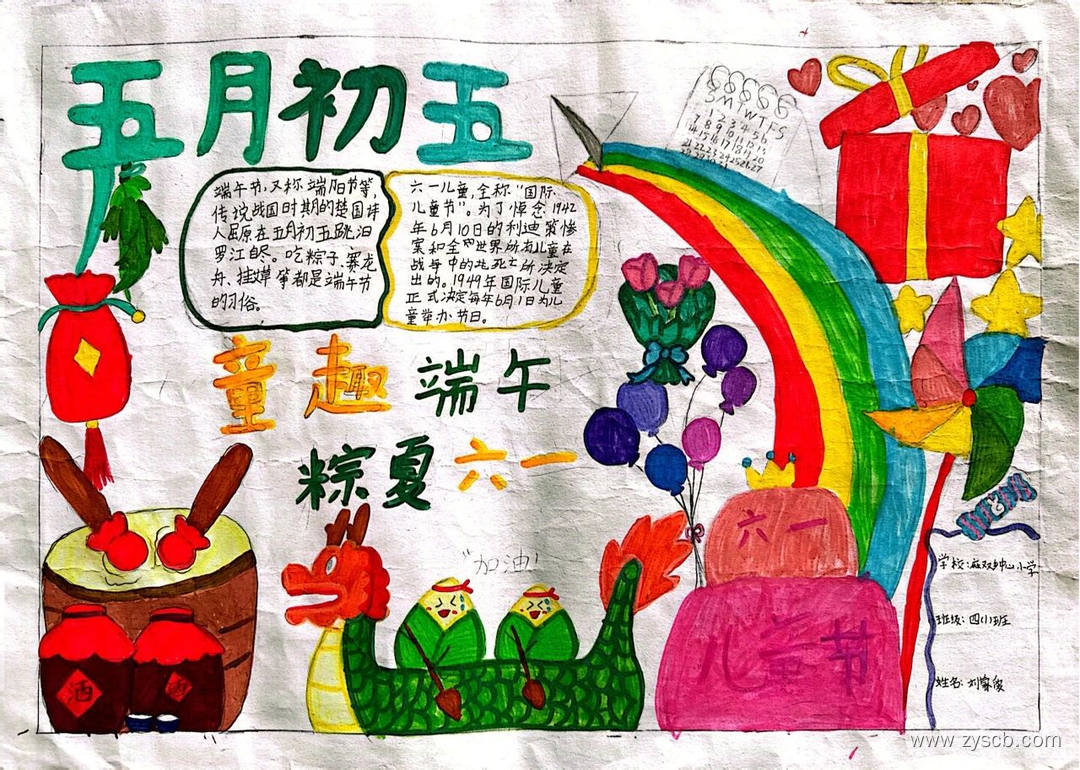 五月初五
端午节,又称端阳节等,
传说战国时期的楚国诗
人屈原在五月初五跳汨
罗江自尽。吃粽子,赛龙
舟、挂
等都是端午节
的习俗。
六一儿童,全称"国际
儿童节"。为了悼念1942
年6月10日的利迪策惨
案和全世界所有儿童在
战争中的
死亡所决定
出的。1949年国际儿童
正式决定每年6月1日为儿
童举办节日。
SMTWTFS
1 2 3 4 5 6
7 8 9 10 11 12 13
14 15 16 17 18 19 20
21 22 23 24 25 26 27
童趣端午
粽夏六一
"加油!
酒
酒
六一
儿童节
学校:
双
中心小学
班级:四(1)班
姓名:刘
俊
www.zyscb.com